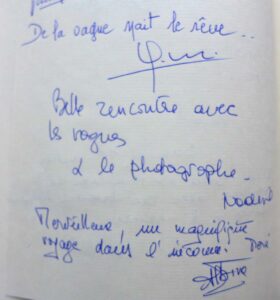 De la vague naît le rêve..
Belle rencontre avec
les vagues
& le photographe.
Nadine
Merveilleux, un magnifique
voyage dans l'inconnu.